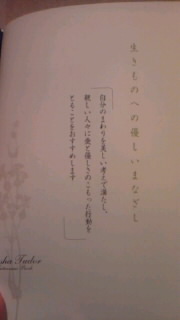 生きものへの優しいまなざしも
自分のまわりを美しい考えで満たし、
親しい人々に愛と優しさのこもった行動を
とることをおすすめします
Tudor